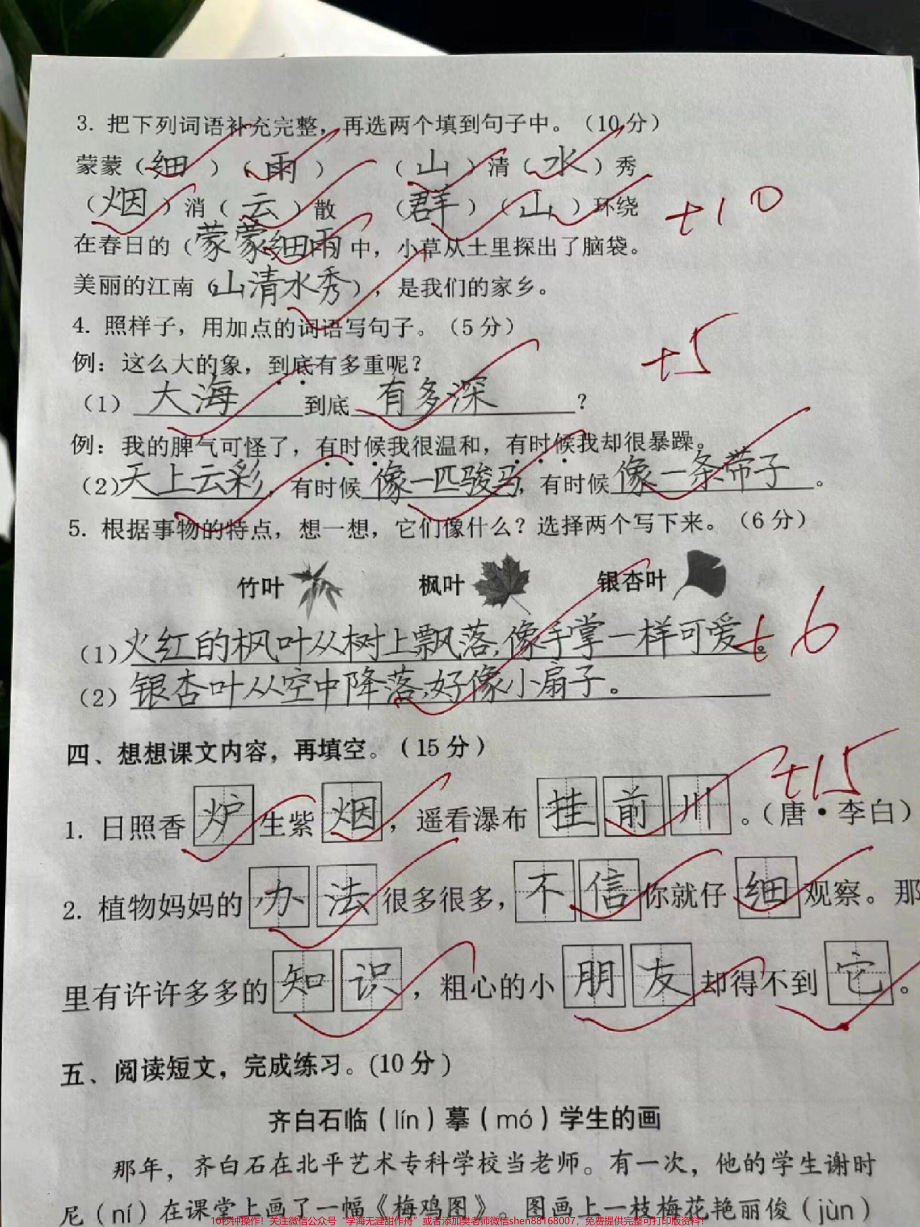 3. 把下列词语补充完整，再选两个填到句子中。（10分）
蒙蒙（细）（雨） （山）清（水）秀
（烟）消（云）散 （群）（山）环绕
+10
在春日的（蒙蒙细雨）中，小草从土里探出了脑袋。
美丽的江南（山清水秀），是我们的家乡。
4. 照样子，用加点的词语写句子。（5分）
+5
例：这么大的象，到底有多重呢？
（1）大海到底有多深？
例：我的脾气可怪了，有时候我很温和，有时候我却很暴躁。
（2）天上云彩，有时候像一匹骏马，有时候像一条带子。
5. 根据事物的特点，想一想，它们像什么？选择两个写下来。（6分）
竹叶 枫叶 银杏叶
（1）火红的枫叶从树上飘落，像手掌一样可爱。
+6
（2）银杏叶从空中降落，好像小扇子。
四、想想课文内容，再填空。（15分）
+15
1. 日照香炉生紫烟，遥看瀑布挂前川。（唐·李白）
2. 植物妈妈的办法很多很多，不信你就仔细观察。那
里有许许多多的知识，粗心的小朋友却得不到它。
五、阅读短文，完成练习。(10分)
齐白石临（lín）摹（mó）学生的画
那年，齐白石在北平艺术专科学校当老师。有一次，他的学生谢时
尼（ní）在课堂上画了一幅《梅鸡图》。图画上一枝梅花艳丽俊（jùn）
10秒钟操作！关注微信公众号“学海无涯甜作舟”或者添加樊老师微信shen88168007，免费提供完整可打印版资料!